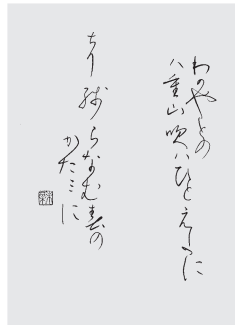 わかやとの
八重山吹ハひとへたに
ちり残らなむ春の
かたミに